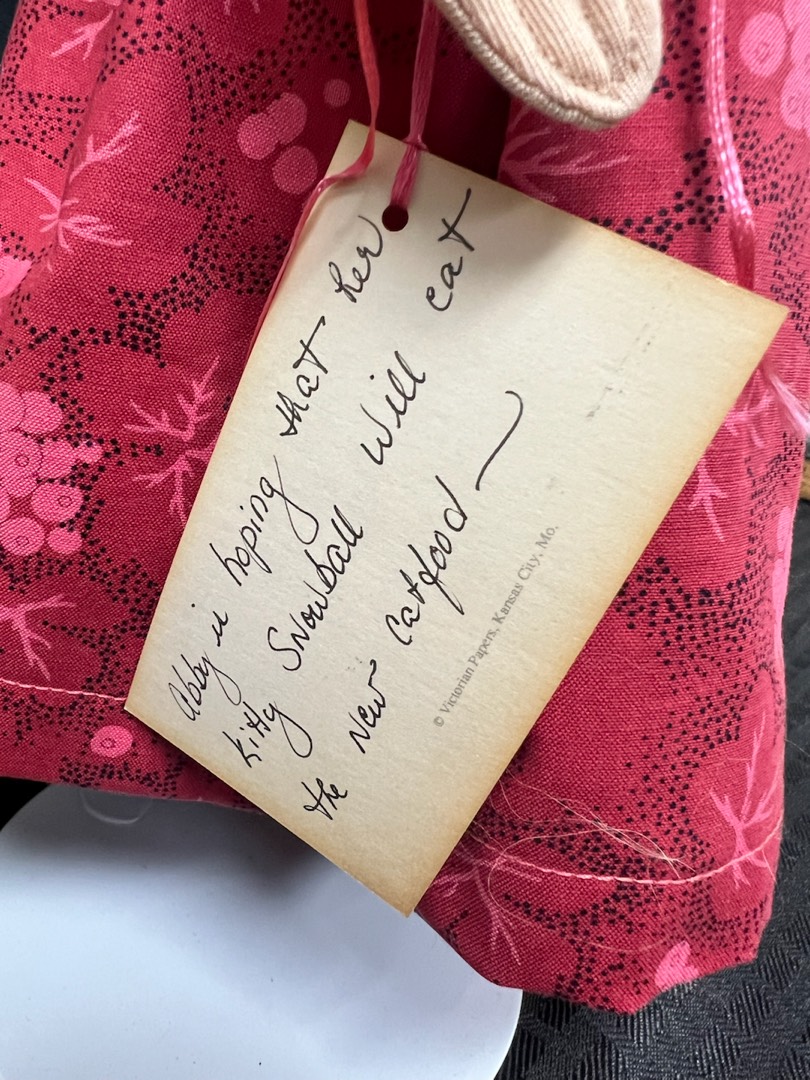 Abby is hoping that her
kitty Snowball will eat
the new catfood —
© Victorian Papers, Kansas City, Mo.